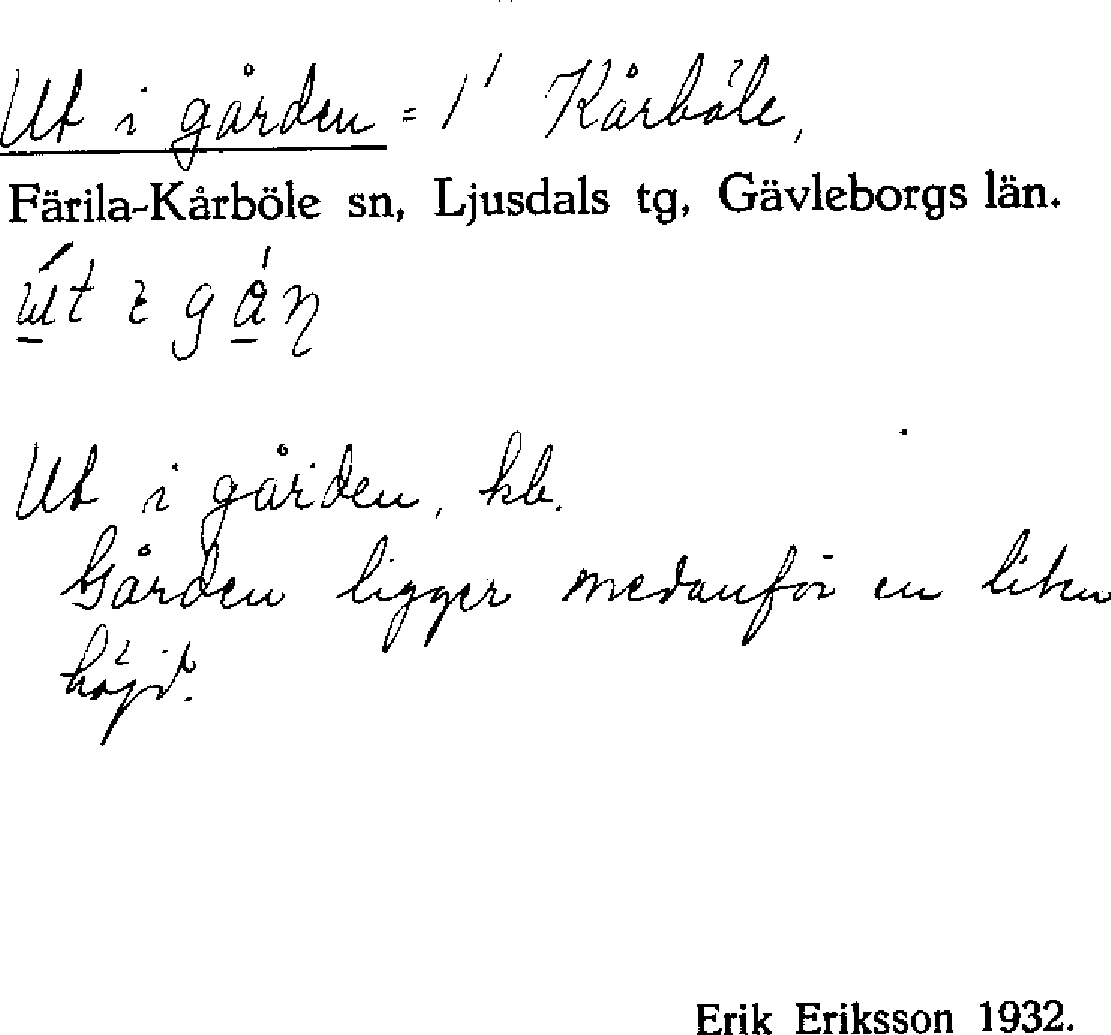 Ut i gården = 1' Kårböle,
Färila-Kårböle sn, Ljusdals tg, Gävleborgs län.
út ɩ gån
Ut i gården, hb.
Gården ligger nedanför en liten
höjd.
Erik Eriksson 1932.